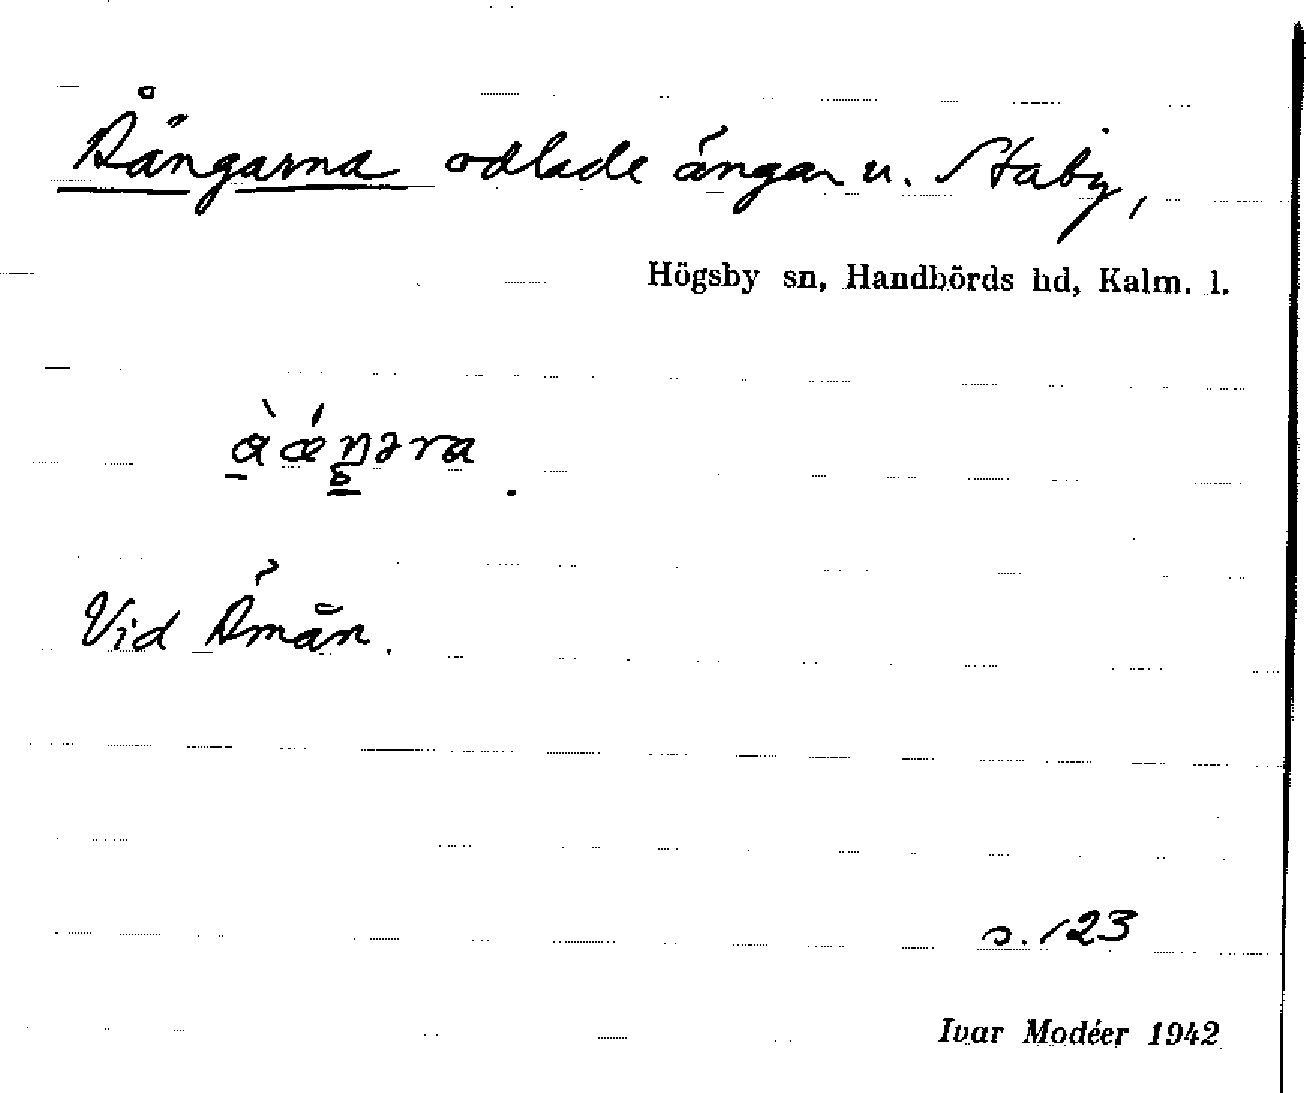 Åängarna odlade ängar u. Staby,
Högsby sn, Handbörds hd, Kalm. l.
Vid Åmån.
s. 123
Ivar Modéer 1942